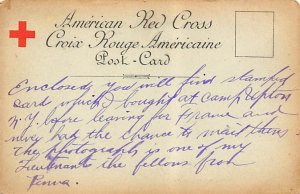 American Red Cross
Croix Rouge Américaine
Post-Card
Enclosed you will find stamped
card which I bought at camp Upton
N.Y before leaving for France and
never had the chance to mail them
The photograph is one of my
Lieutenant the fellows from